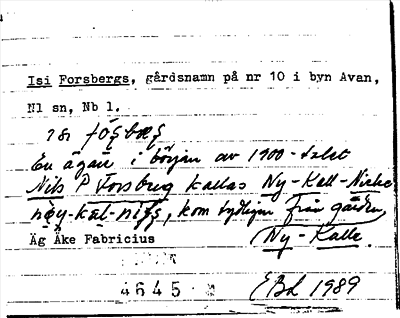 Isi Forsbergs, gårdsnamn på nr 10 i byn Avan,
Nl sn, Nb l.
En ägare i början av 1900-talet
Nils P Forsberg kallas Ny-Kall-Nicke
kom tydligen från gården
Äg Åke Fabricius Ny-Kalle.
4645
EBL 1989